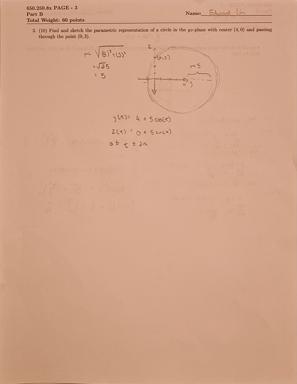 650.250.8x PAGE - 3
Part B
Name:
Total Weight: 60 points
3. (10) Find and sketch the parametric representation of a circle in the yz-plane with center (4, 0) and passing
through the point (0, 3).
= √25
= 5
z
(0,3)
r=5
y
y(t) = 4 + 5cos(t)
z(t) = 0 + 5sin(t)
0 ≤ t ≤ 2π